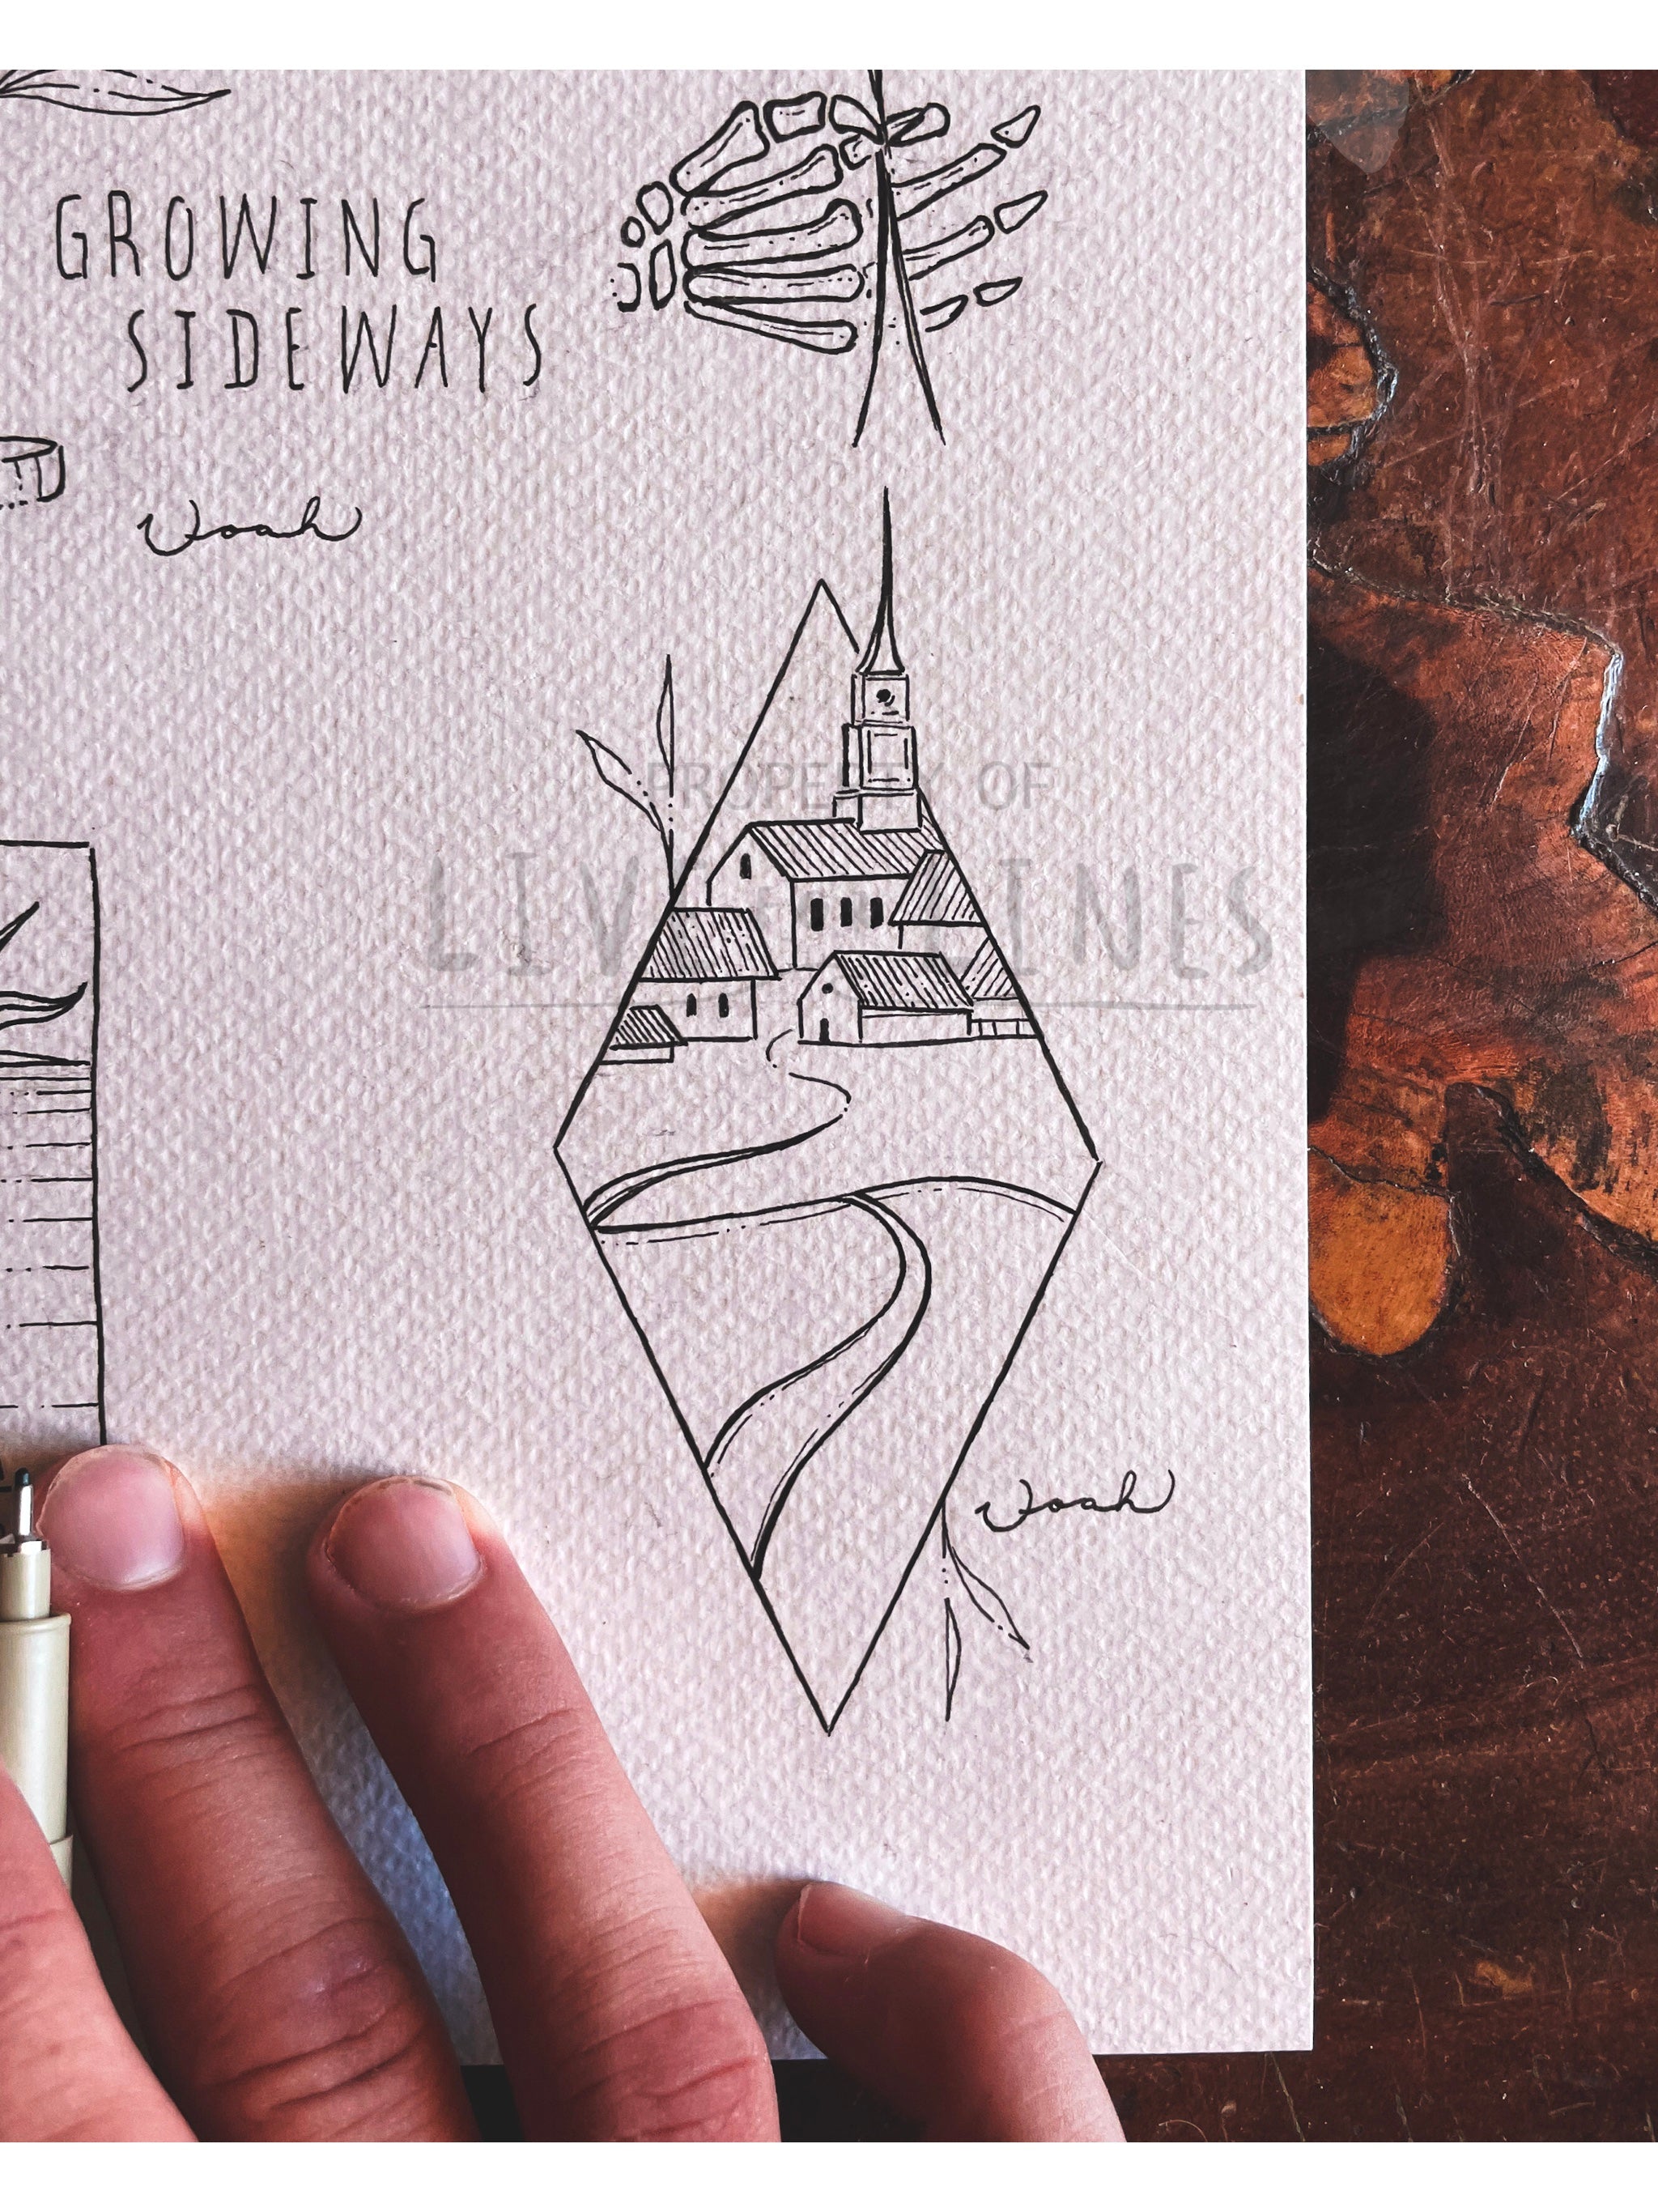 GROWING
SIDEWAYS
Noah
PROPERTY OF
LIVE LINES
Noah